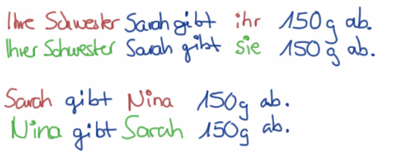 Ihre Schwester Sarah gibt ihr 150g ab.
Ihrer Schwester Sarah gibt sie 150g ab.
Sarah gibt Nina 150g ab.
Nina gibt Sarah 150g ab.